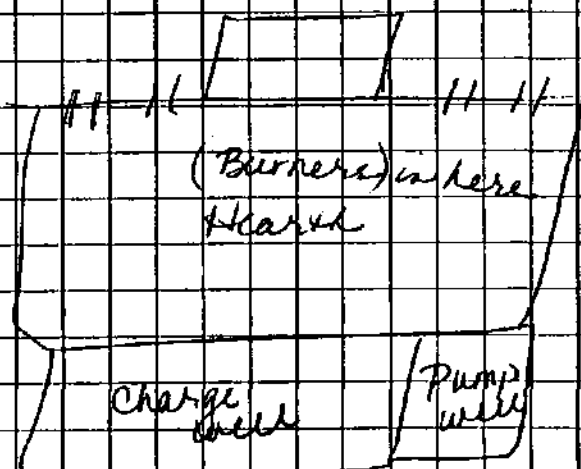 (Burners) in here
Hearth
Charge
well
Pump
well